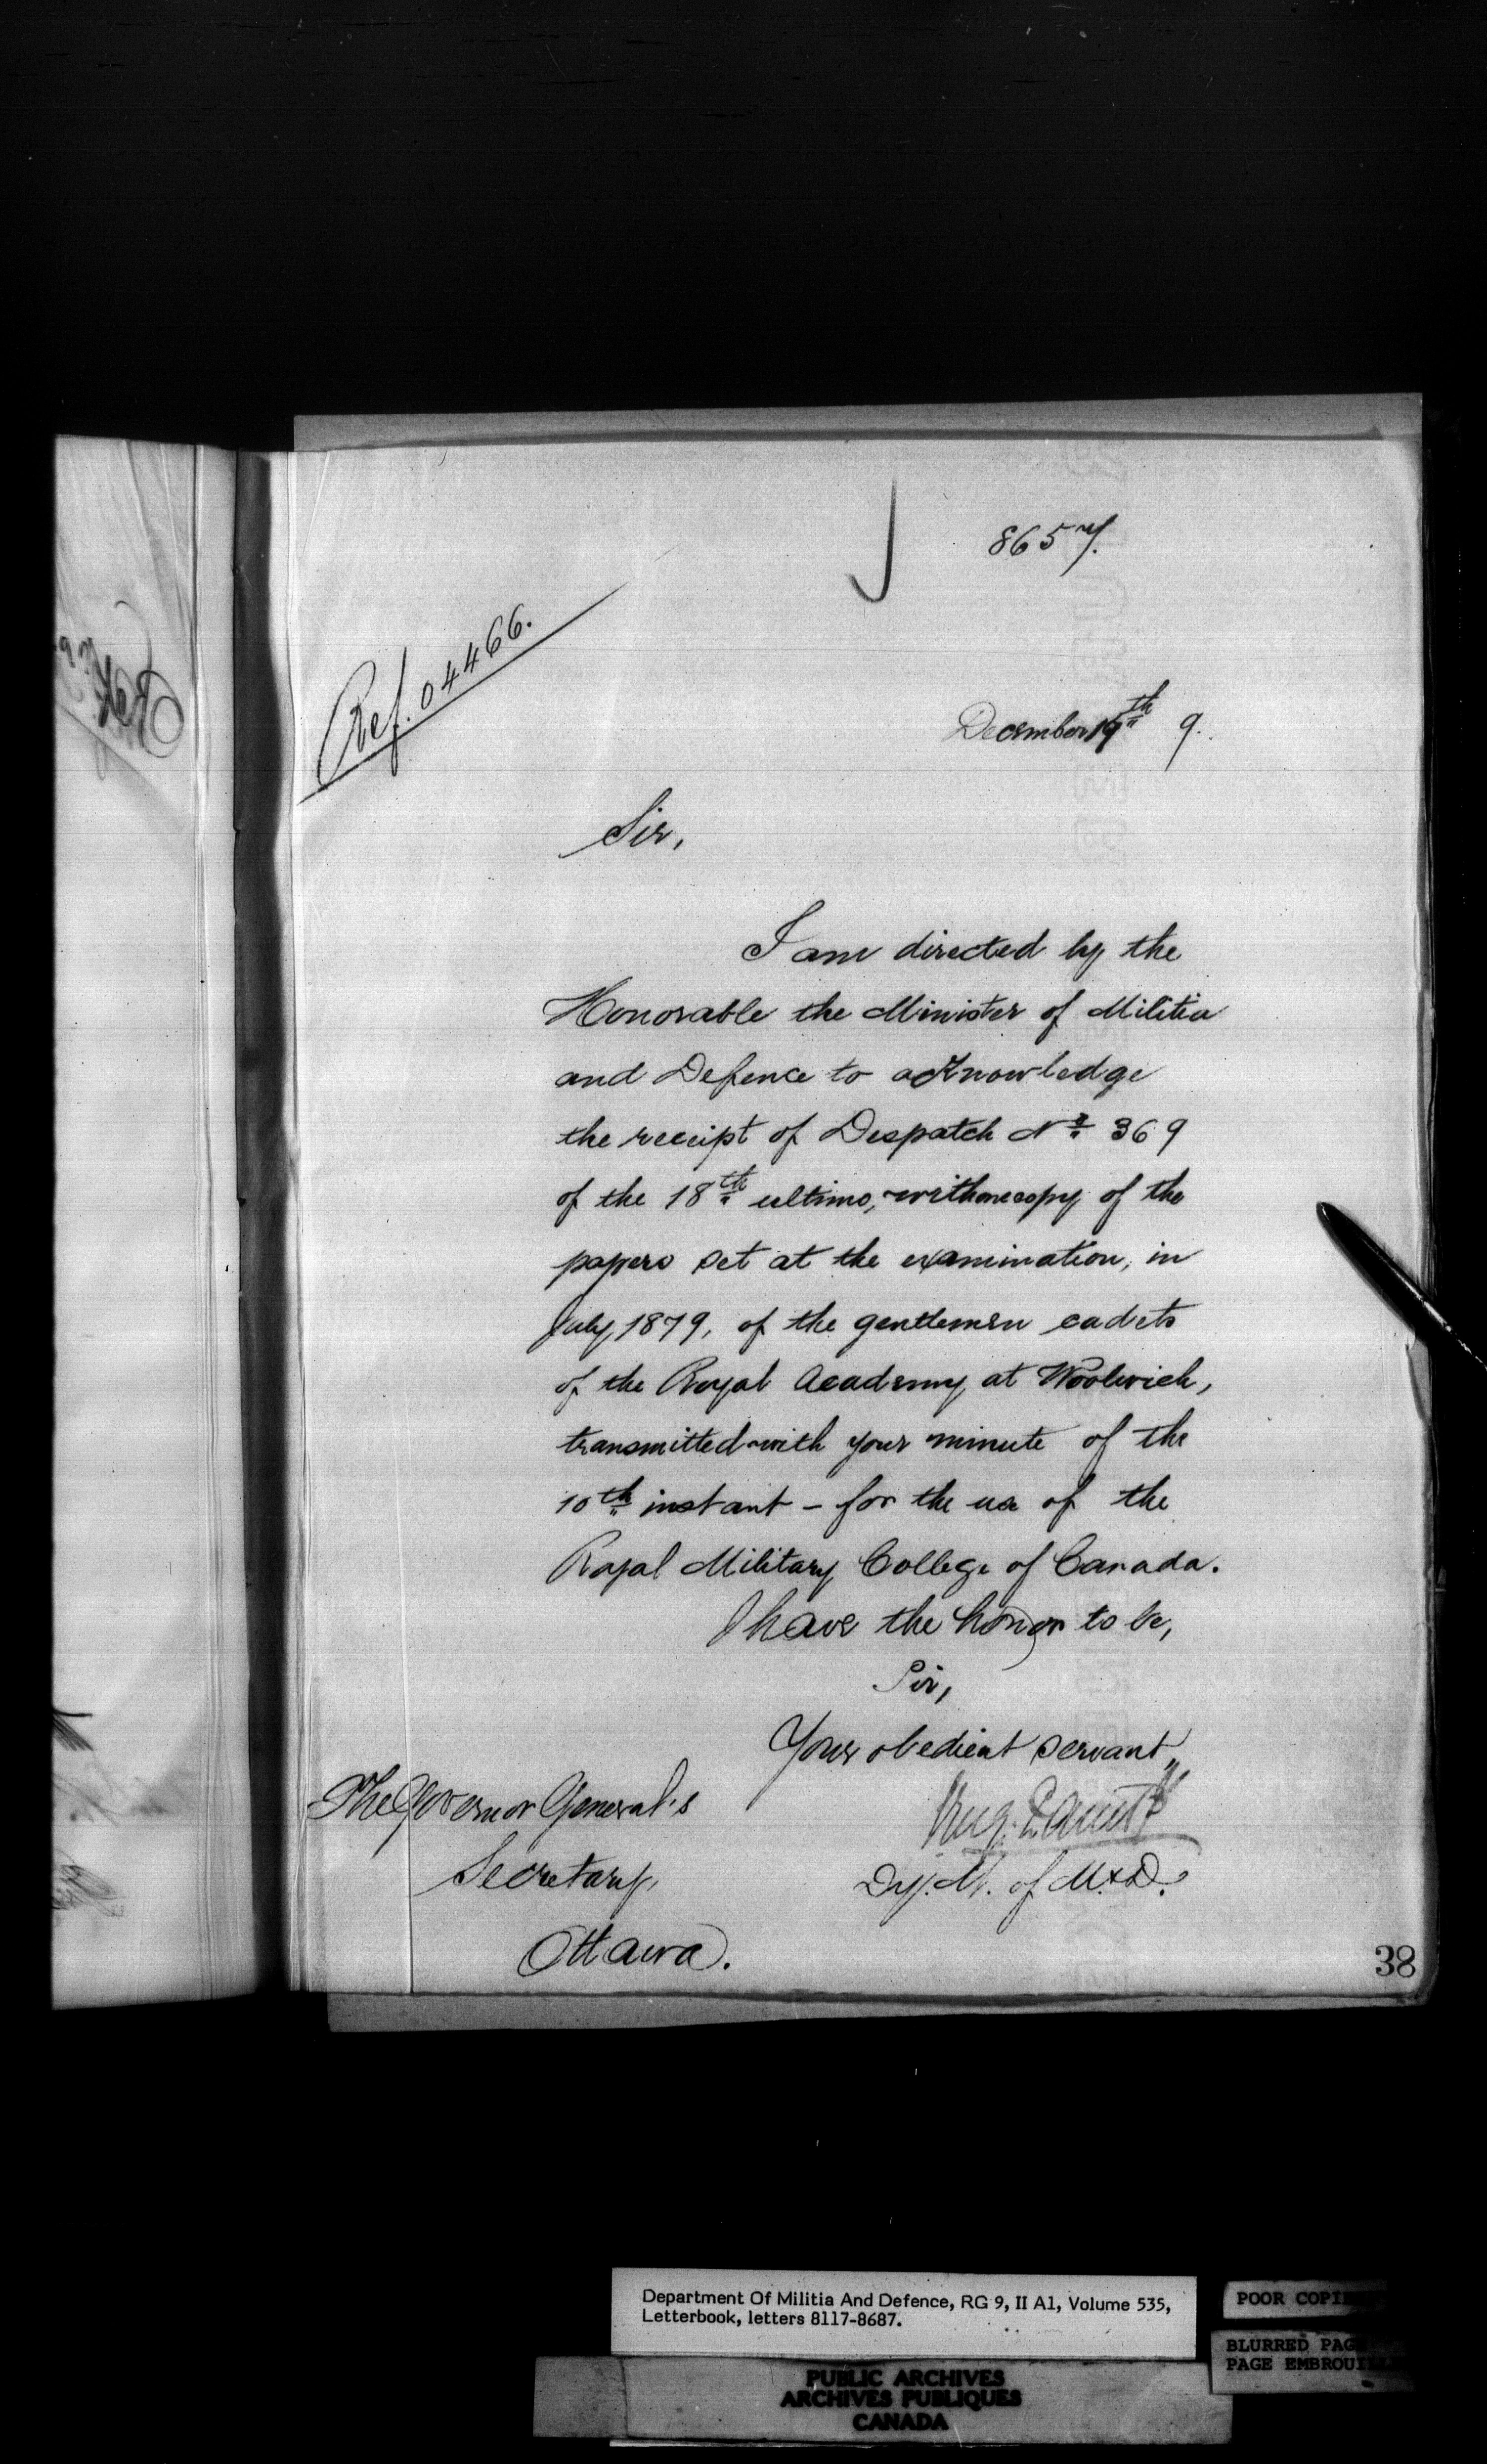 8657.
Ref. 04466.
December 19th 9.
Sir,
I am directed by the
Honorable the Minister of Militia
and Defence to acknowledge
the receipt of Despatch No 369
of the 18th ultimo, with one copy of the
papers set at the examination, in
July, 1879, of the gentlemen cadets
of the Royal Academy at Woolwich,
transmitted with your minute of the
10th instant - for the use of the
Royal Military College of Canada.
I have the honor to be,
Sir,
Your obedient servant,
Dy. M. of M. & D.
The Governor General's
Secretary,
Ottawa.
38
Department Of Militia And Defence, RG 9, II A1, Volume 535,
Letterbook, letters 8117-8687.
POOR COPI
BLURRED PAG
PAGE EMBROUI
PUBLIC ARCHIVES
ARCHIVES PUBLIQUES
CANADA